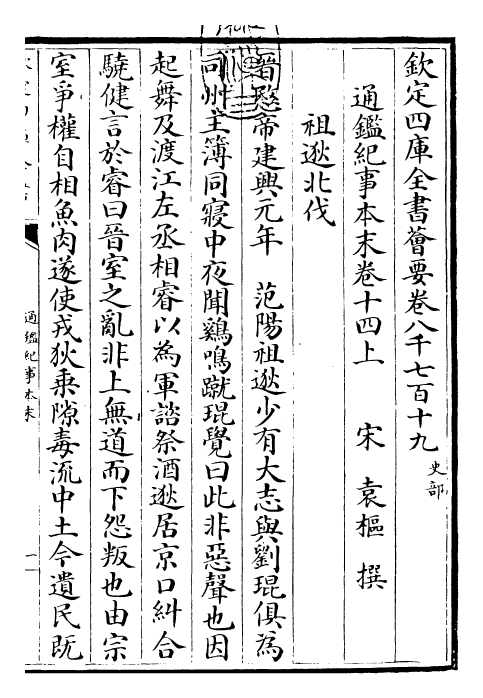 欽定四庫全書薈要卷八千七百十九 史部
通鑑紀事本末卷十四上 宋 袁樞 撰
祖逖北伐
晉愍帝建興元年 范陽祖逖少有大志與劉琨俱為
司州主簿同寢中夜聞雞鳴蹴琨覺曰此非惡聲也因
起舞及渡江左丞相睿以為軍諮祭酒逖居京口糾合
驍健言於睿曰晉室之亂非上無道而下怨叛也由宗
室爭權自相魚肉遂使戎狄乗隙毒流中土今遺民既
通鑑紀事本末
一